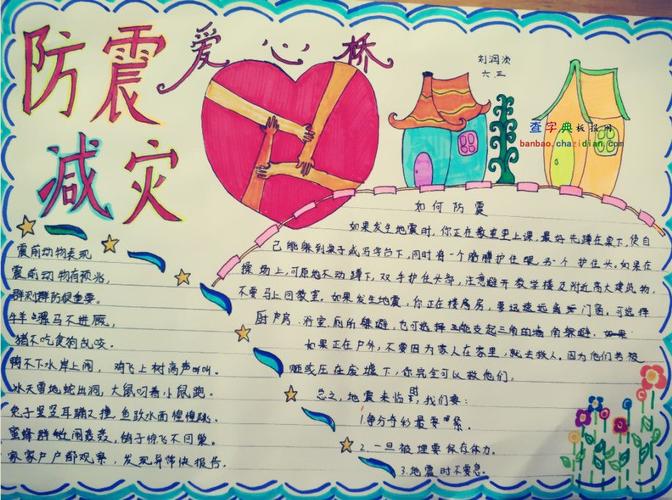 防震
减灾
爱心桥
刘润波
六三
查字典板报网
banbao.chazidian.com
如何防震
如果发生地震时,你正在教室里上课,最好先蹲在桌下,使自
己能躲到桌子或马字台下,同时用一个胳膊护住眼另一个护住头。如果在
操场上,可原地不动蹲下,双手护住头部,注意避开教学楼及附近高大建筑物,
不要马上回教室。如果发生地震,你正在楼房房,要远离远当天门窗,可选择
厨房、浴室、厕所等躲避,也可选择三角的墙角躲避。如果
如果正在户外,不要因为家人在家里,就去救人。因为他们若被
砸或压在金墟下,你完全可以救他们。
总之,地震来临时,我们要:
1.争分夺
2.一旦被埋要保存体力。
3.地震时不要急。
震前动物表现
震前动物有预兆,
群测群防很重要。
牛羊骡马不进厩,
猪不吃食狗乱咬。
鸭不下水岸上闹,鸡飞上树高声叫。
冰天雪地蛇出洞,大鼠叼着小鼠跑。
兔子竖耳蹦又撞,鱼跃水面惶惶跳。
蜜蜂群飞闹轰轰,鸽子惊飞不回巢。
家家户户都观察,发现异常快报告。